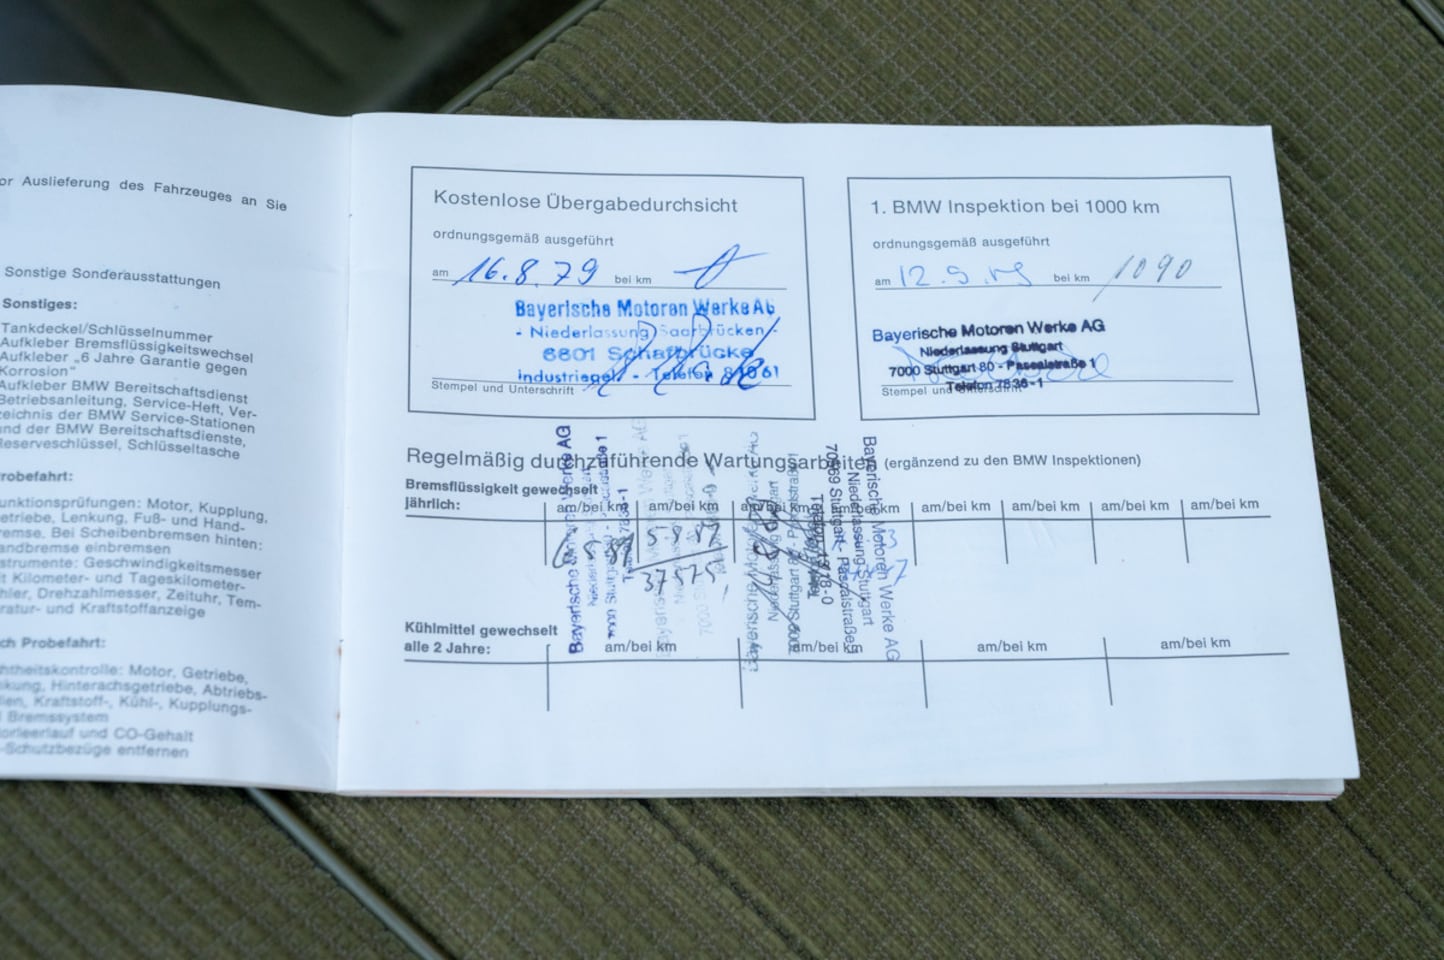 or Auslieferung des Fahrzeuges an Sie
Sonstige Sonderausstattungen
Sonstiges:
Tankdeckel/Schlüsselnummer
Aufkleber Bremsflüssigkeitswechsel
Aufkleber „6 Jahre Garantie gegen
Korrosion“
Aufkleber BMW Bereitschaftsdienst
Betriebsanleitung, Service-Heft, Ver-
zeichnis der BMW Service-Stationen
und der BMW Bereitschaftsdienste,
Reserveschlüssel, Schlüsseltasche
robefahrt:
unktionsprüfungen: Motor, Kupplung,
etriebe, Lenkung, Fuß- und Hand-
remse. Bei Scheibenbremsen hinten:
andbremse einbremsen
strumente: Geschwindigkeitsmesser
it Kilometer- und Tageskilometer-
hler, Drehzahlmesser, Zeituhr, Tem-
ratur- und Kraftstoffanzeige
ch Probefahrt:
htheitskontrolle: Motor, Getriebe,
kung, Hinterachsgetriebe, Abtriebs-
len, Kraftstoff-, Kühl-, Kupplungs-
Bremssystem
orleerlauf und CO-Gehalt
-Schutzbezüge entfernen
Kostenlose Übergabedurchsicht
ordnungsgemäß ausgeführt
am 16.8.79 bei km
Bayerische Motoren Werke AG
- Niederlassung Saarbrücken -
6601 Schafbrücke
Industriegel. - Telefon 81061
Stempel und Unterschrift
1. BMW Inspektion bei 1000 km
ordnungsgemäß ausgeführt
am 12.9.79 bei km 1090
Bayerische Motoren Werke AG
Niederlassung Stuttgart
7000 Stuttgart 80 - Pascalstraße 1
Telefon 7836-1
Stempel und Unterschrift
Regelmäßig durchzuführende Wartungsarbeiten (ergänzend zu den BMW Inspektionen)
Bremsflüssigkeit gewechselt
jährlich: am/bei km am/bei km am/bei km am/bei km am/bei km am/bei km am/bei km am/bei km
37575
Bayerische Motoren Werke AG
Bayerische Motoren Werke AG
Niederlassung Stuttgart
70569 Stuttgart - Pascalstraße
Kühlmittel gewechselt
alle 2 Jahre: am/bei km am/bei km am/bei km am/bei km